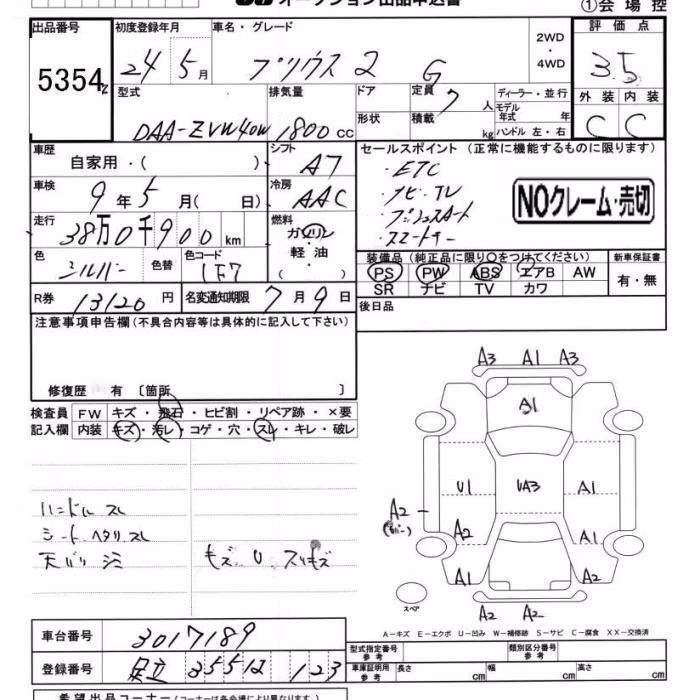 オークション出品申込書
①会場控
出品番号 初度登録年月 車名・グレード 2WD・4WD 評価点
5354 24年5月 プリウス2 G 3.5
型式 排気量 ドア 定員 7人 ディーラー・並行
モデル年式 年
外装 内装
DAA-ZVW40W 1800cc 形状 積載 kg ハンドル 左・右 C C
車歴 シフト セールスポイント (正常に機能するものに限ります)
自家用・( ) A7
・ETC
・ナビ・TV
・プッシュスタート
・スマートキー
NOクレーム・売切
車検 冷房
9年5月( 日) AAC
走行 燃料
38万0千900km ガソリン・軽油・( )
色 シルバー 色替 色コード 1F7
装備品 (純正品に限り〇をつけてください) 新車保証書
PS PW ABS エアB AW 有・無
SR ナビ TV カワ
R券 13120円 名変通知期限 7月9日
後日品
注意事項申告欄(不具合内容等は具体的に記入して下さい)
修復歴 有 〔箇所 〕
検査員記入欄 FW キズ・飛石・ヒビ割・リペア跡・×要
内装 キズ・汚レ・コゲ・穴・スレ・キレ・破レ
ハンドル スレ
シート ヘタリ スレ
天バリ シミ
キズ U スリキズ
A3 A1 A3
A1
U1 UA3 A1
A2
A2 A1
A1 A2
スペア
A2 A2
A-キズ E-エクボ U-凹み W-補修跡 S-サビ C-腐食 XX-交換済
車台番号 3017189
型式指定番号 参考 類別区分番号 参考
登録番号 足立 355 は 123
車庫証明用 参考 長さ cm 幅 cm 高さ cm
希望出品コーナー(コーナーは各会場により異なります。)